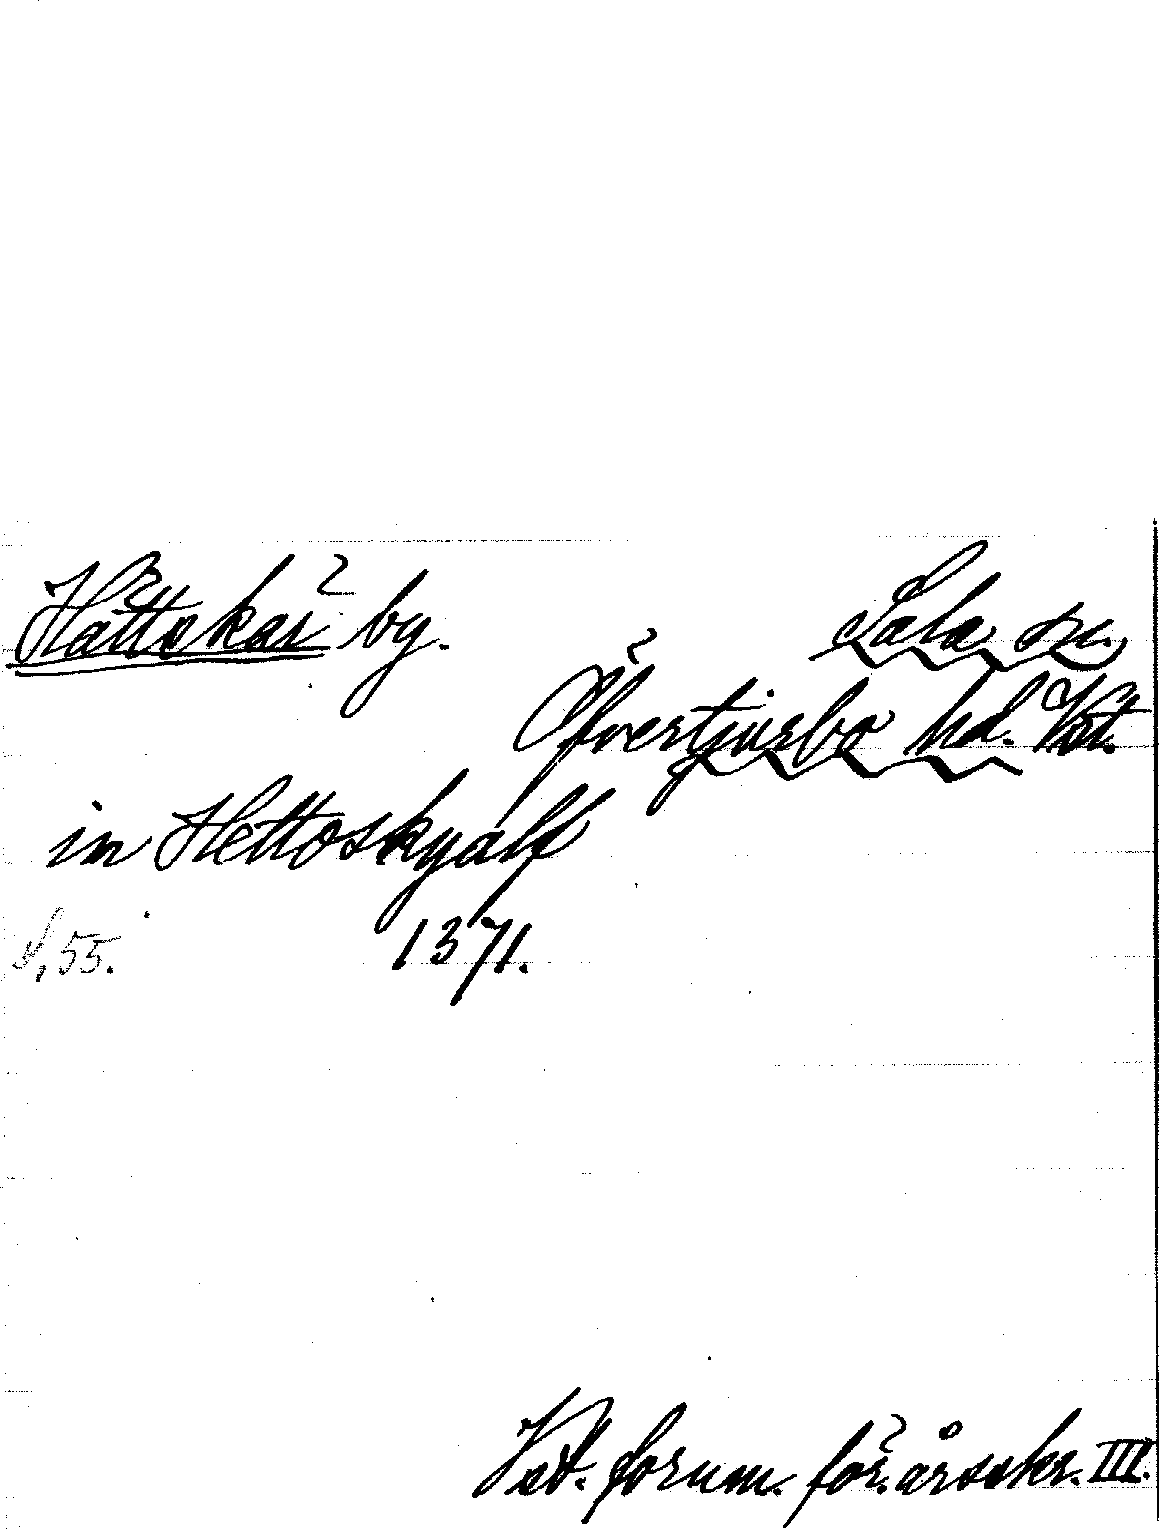 Hättskär by. Sala sn.
Öfvertjurbo hd. Vst.
in Hettoskyalf
s. 55. 1371.
Vst. fornm. för. årsskr. III.